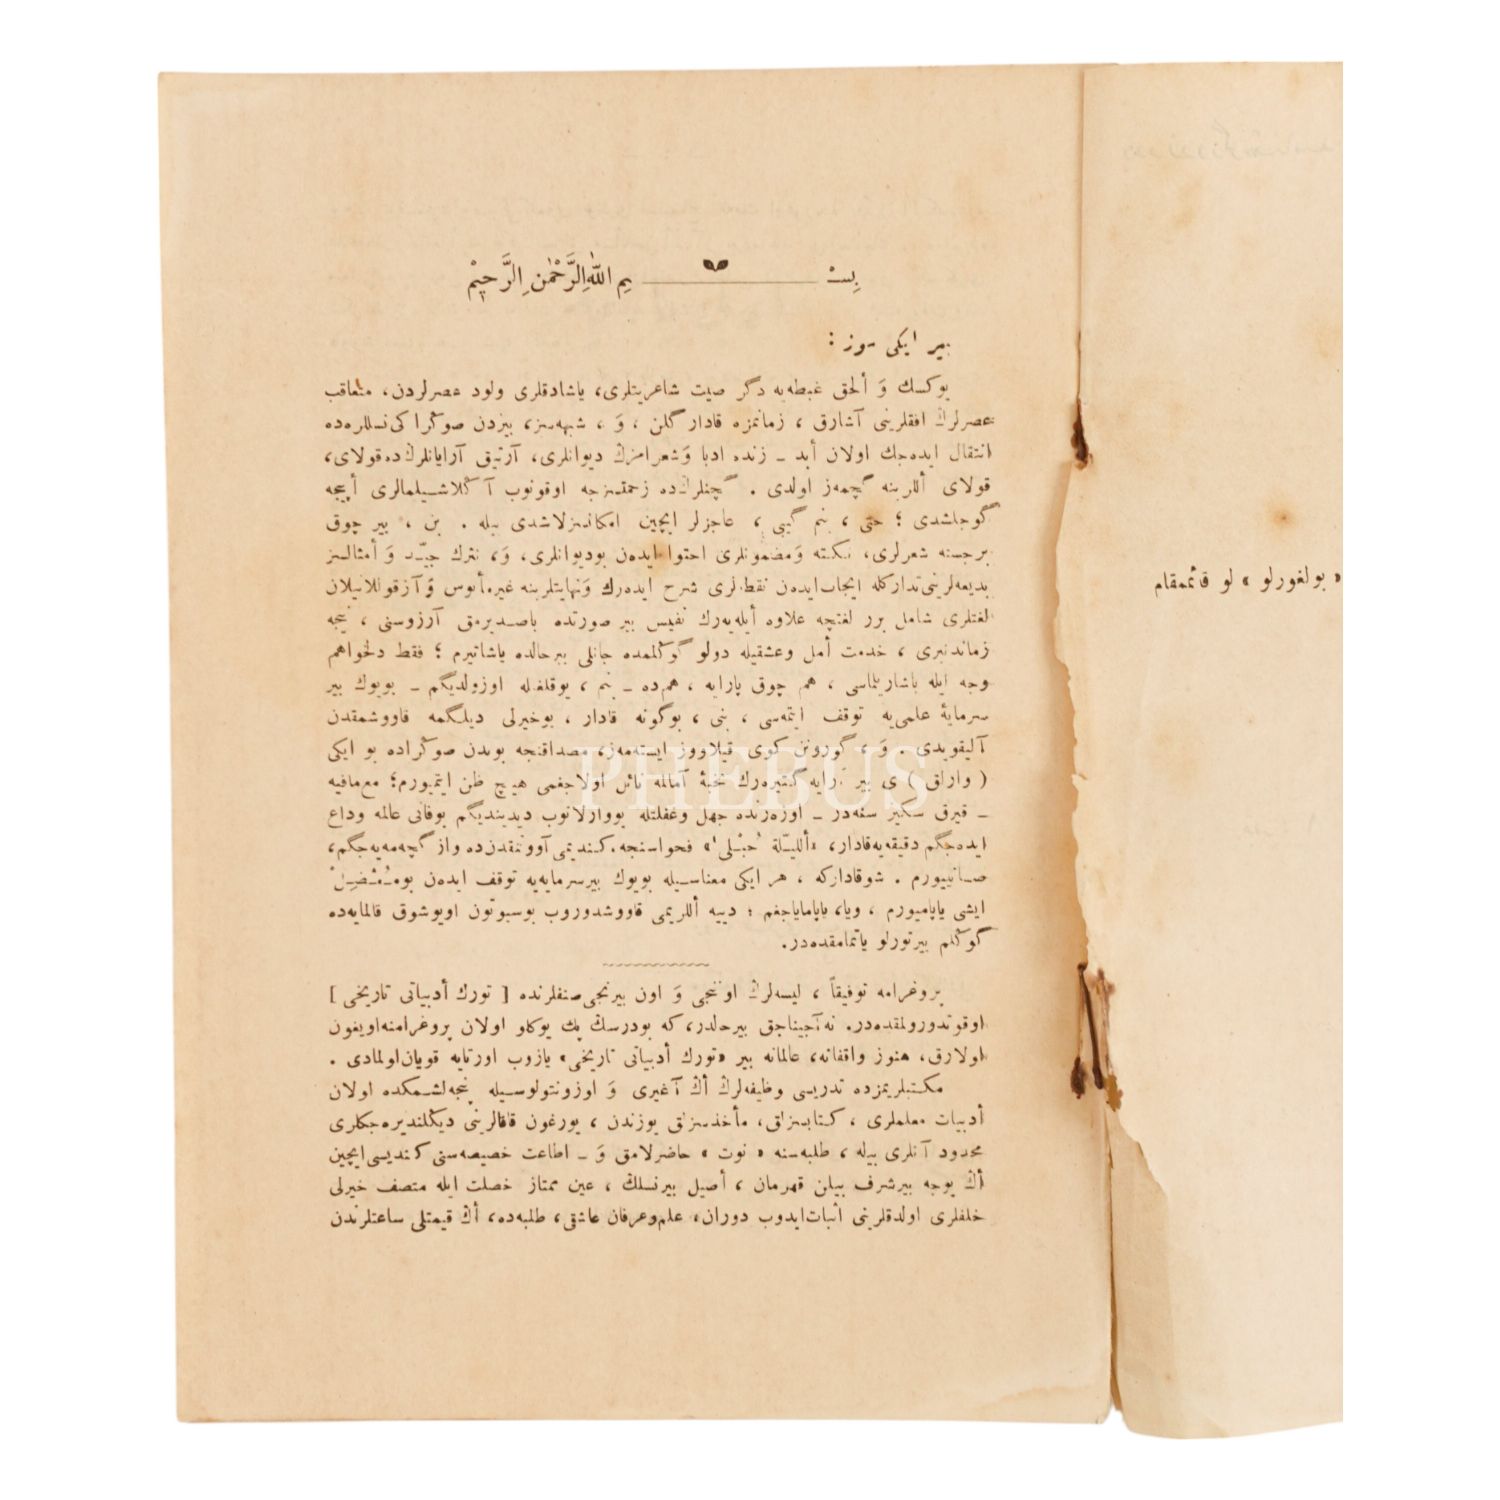 بِسْـــمِ اللّٰهِ الرَّحْمٰنِ الرَّحِيْمِ
بیر ایكی سوز :
یوكسك وَ ألحق غبطه‌یه دگر صیت شاعریتلری، یاشادقلری ولود عصرلردن، متعاقب
عصرلرڭ افقلرینی آشارق ، زمانمزه قادار گلن ، وَ ، شبهه‌سز، بیزدن صوڭرا كی نسللره‌ده
انتقال ایده‌جك اولان أبد ـ زنده ادبا وَ شعرامزڭ دیوانلری، آرتیق آرایانلرڭ ده قولای،
قولای أللرینه گچمه‌ز اولدی . گچنلرڭ ده زحمتسزجه اوقونوب آڭلاشیلمالری أپیجه
گوجلشدی ؛ حتی ، بنم گیبی ، عاجزلر ایچین امكانسزلاشدی بیله . بن ، بیر چوق
برجسته شعرلری، نكته وَ مضمونلری احتوا ایده‌ن بودیوانلری، وَ، نثرك جیّد وَ أمثالسز
بدیعه‌لرینی تداركله ایجاب ایده‌ن نقطه‌لری شرح ایده‌رك وَ نهایتلرینه غیرمأنوس وَ آز قوللانیلان
لغتلری شامل برر لغتچه علاوه أیله‌یه‌رك نفیس بیر صورتده باصدیرمق آرزوسنی ، نیجه
زماندنبری ، خدمت أمل وعشقیله دولو گوڭلمده جانلی بیرحالده یاشاتیرم ؛ فقط دلخواهم
وجه ایله باشاریلماسی ، هم چوق پارایه ، هم‌ده ـ بنم ، یوقلغیله اوزولدیگم ـ بویوك بیر
سرمایهٔ علمی‌یه توقف ایتمه‌سی ، بنی ، بوگونه قادار ، بوخیرلی دیلگمه قاووشمقدن
آلیقویدی . وَ ، گورونن كوی قیلاووز ایسته‌مه‌ز، مصداقنجه بوندن صوڭراده بو ایكی
( وارلق ) ی بیر آرایه گتیره‌رك نخبهٔ آمالمه نائل اولاجغمی هیچ ظن ایتمیورم؛ مع‌مافیه
ـ قیرق سكیز سنه‌در ـ اوزه‌رنده جهل وغفلتله یووارلانوب دیدیندیگم بوفانی عالمه وداع
ایده‌جگم دقیقه‌یه قادار، «أللیّلة حُبْلی» فحواسنجه، كندیمی آووتمقدن‌ده واز گچه‌مه‌یه‌جگم،
صانییورم . شوقاداركه ، هر ایكی معناسیله بویوك بیرسرمایه‌یه توقف ایده‌ن بومُعْضِل
ایشی یاپامیورم ، ویا، یاپامایاجغم ؛ دییه أللریمی قاووشدوروب بوسبوتون اویوشوق قالمایه‌ده
گوڭلم بیرتورلو یاتمامقده‌در.
پروغرامه توفیقاً ، لیسه‌لرڭ اوننجی وَ اون بیرنجی صنفلرنده [ تورك أدبیاتی تاریخی ]
اوقوتدورولمقده‌در. نه آجیناجق بیرحالدر، كه بودرسڭ پك یوكلو اولان پروغرامنه اویغون
اولارق، هنوز واقفانه، عالمانه بیر «تورك أدبیاتی تاریخی» یازوب اورتایه قویان اولمادی .
مكتبلریمزده تدریسی وظیفه‌لرڭ أڭ آغیری وَ اوزونتولوسیله پنجه‌لشمكده اولان
أدبیات معلملری ، كتابسزلق، مأخذسزلق یوزندن ، یورغون قافالرینی دیڭلندیره‌جكلری
محدود آنلری بیله ، طلبه‌سنه « نوت » حاضرلامق وَ ـ اطاعت خصیصه‌سنی كندیسی ایچین
أڭ یوجه بیرشرف بیلن قهرمان ، أصیل بیرنسلڭ ، عین ممتاز خصلت ایله متصف خیرلی
خلفلری اولدقلرینی اثبات ایدوب دوران، علم‌وعرفان عاشقی، طلبه‌ده، أڭ قیمتلی ساعتلرندن
« بولغورلو » لو قائممقام
PHEBUS